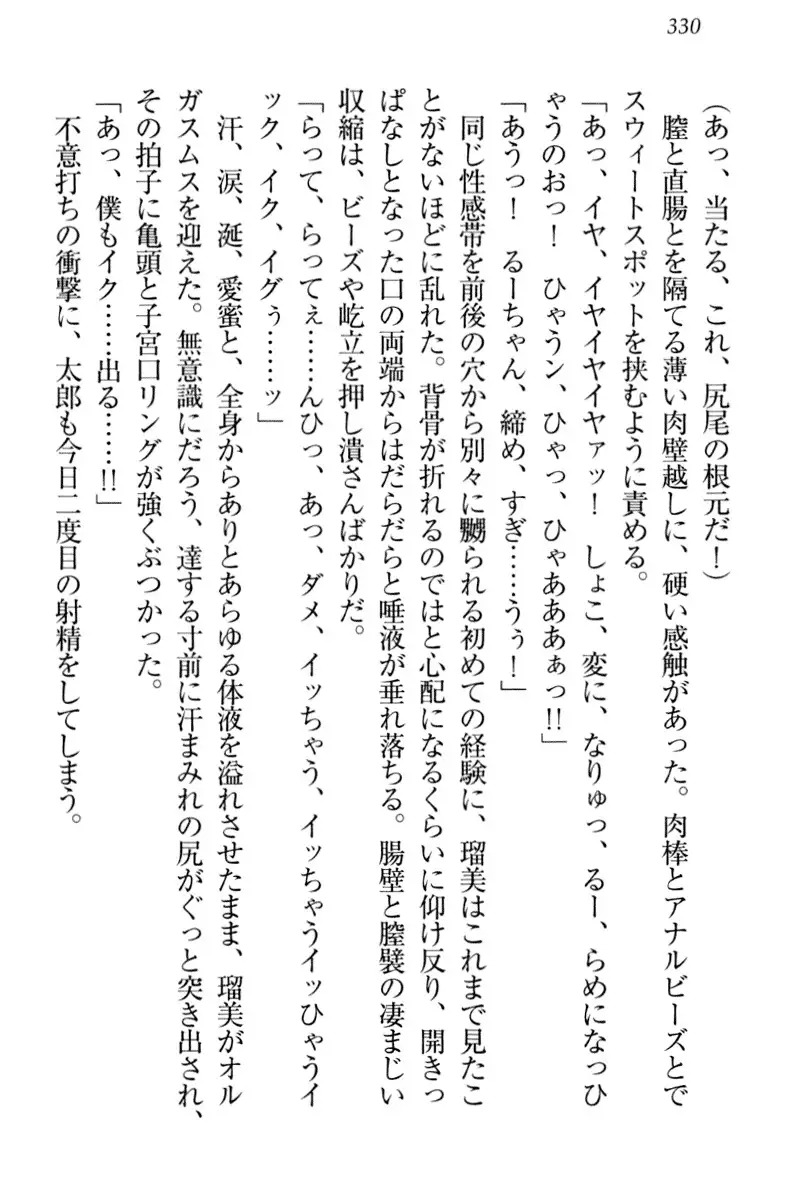 330
(あっ、当たる、これ、尻尾の根元だ!)
　膣と直腸とを隔てる薄い肉壁越しに、硬い感触があった。肉棒とアナルビーズとで
スウィートスポットを挟むように責める。
「あっ、イヤ、イヤイヤイヤァッ！　しょこ、変に、なりゅっ、るー、らめになっひ
ゃうのおっ！　ひゃうン、ひゃっ、ひゃあああぁっ!!」
「あうっ！　るーちゃん、締め、すぎ……うぅ！」
　同じ性感帯を前後の穴から別々に嬲られる初めての経験に、瑠美はこれまで見たこ
とがないほどに乱れた。背骨が折れるのではと心配になるくらいに仰け反り、開きっ
ぱなしとなった口の両端からはだらだらと唾液が垂れ落ちる。腸壁と膣襞の凄まじい
収縮は、ビーズや屹立を押し潰さんばかりだ。
「らって、らってぇ……んひっ、あっ、ダメ、イッちゃう、イッちゃうイッひゃうイ
ック、イク、イグぅ……ッ」
　汗、涙、涎、愛蜜と、全身からありとあらゆる体液を溢れさせたまま、瑠美がオル
ガスムスを迎えた。無意識にだろう、達する寸前に汗まみれの尻がぐっと突き出され、
その拍子に亀頭と子宮口リングが強くぶつかった。
「あっ、僕もイク……出る……!!」
　不意打ちの衝撃に、太郎も今日二度目の射精をしてしまう。